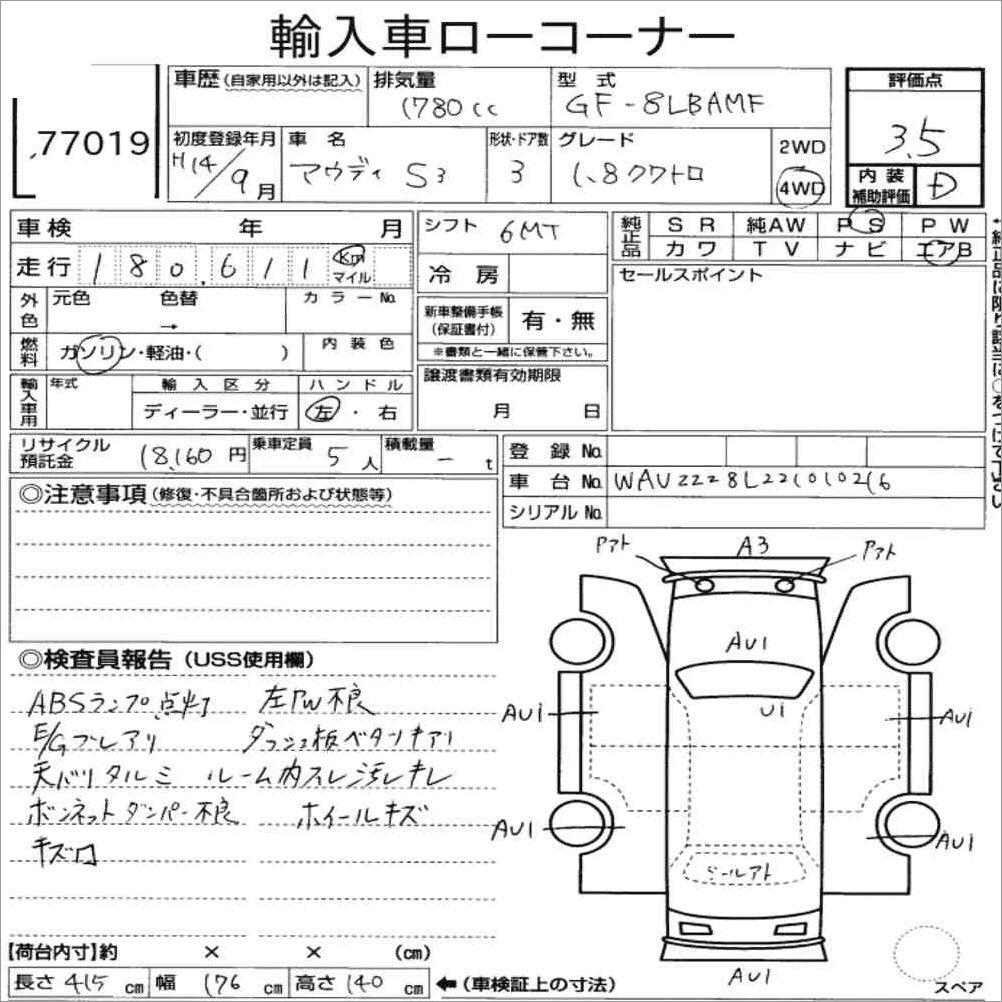 輸入車ローコーナー
77019
車歴(自家用以外は記入) 排気量 1780cc
型式 GF-8LBAMF
評価点 3.5
初度登録年月 H14/9月
車名 アウディ S3
形状・ドア数 3
グレード 1.8クワトロ
2WD
4WD
内装補助評価 D
車検 年 月
シフト 6MT
純正品 SR 純AW PS PW
カワ TV ナビ エアB
走行 180,611 Km マイル
冷房
セールスポイント
外色 元色 色替 → カラーNo.
新車整備手帳(保証書付) 有・無
※書類と一緒に保管下さい。
燃料 ガソリン・軽油・( ) 内装色
譲渡書類有効期限
月 日
輸入車用 年式 輸入区分 ハンドル
ディーラー・並行 左・右
リサイクル預託金 18,160円 乗車定員 5人 積載量 ー t
登録No.
車台No. WAUZZZ8L221010216
シリアルNo.
◎注意事項(修復・不具合箇所および状態等)
アト A3 アト
AU1
U1
AU1 AU1
AU1 AU1
AU1
スペア
◎検査員報告(USS使用欄)
ABSランプ点灯 左PW不良
E/Gブレアリ ダッシュ板ベタツキアリ
天バリタルミ ルーム内スレ汚レキレ
ボンネットダンパー不良 ホイールキズ
【荷台内寸】約 × × (cm)
長さ 415 cm 幅 176 cm 高さ 140 cm ←(車検証上の寸法)